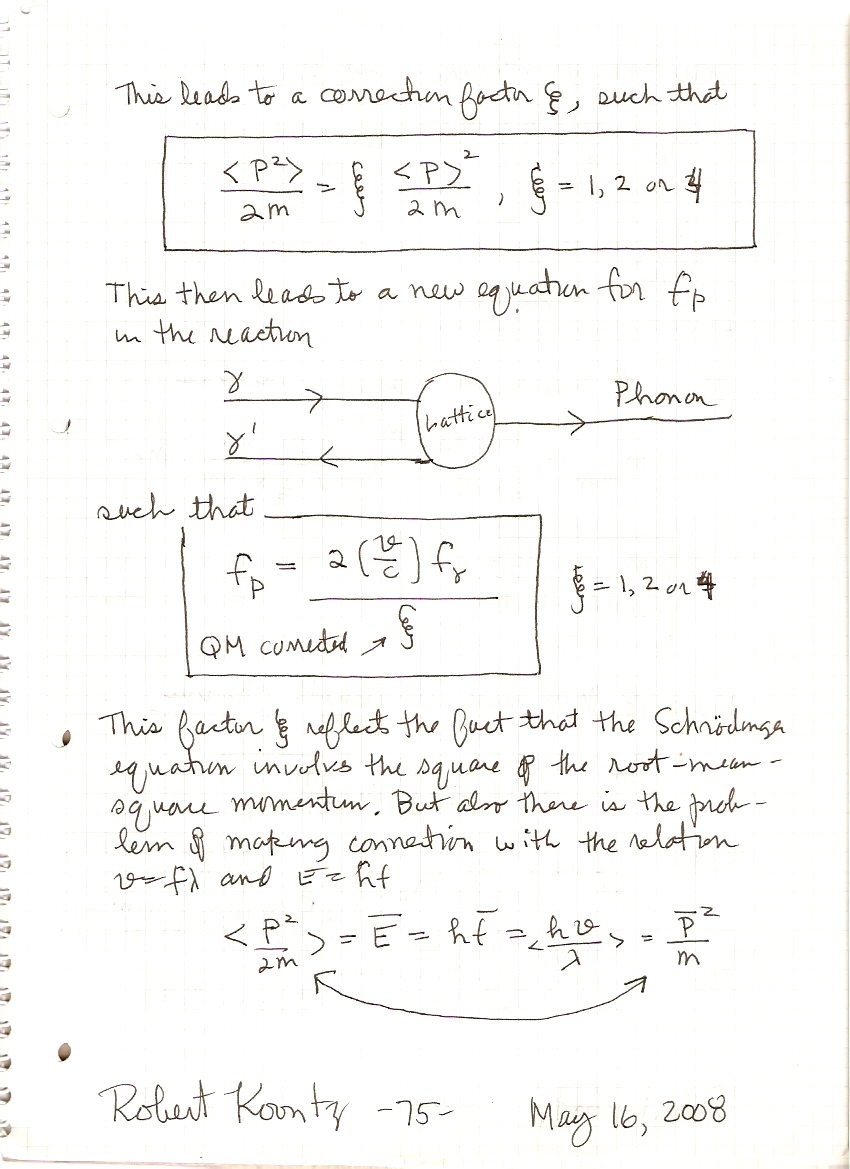 This leads to a correction factor ξ, such that
<P²>/2m = ξ <P>²/2m , ξ = 1, 2 or 4
This then leads to a new equation for fp
in the reaction
γ
Phonon
Lattice
γ'
such that
fp = 2(v/c) fγ / ξ
ξ = 1, 2 or 4
QM corrected ↗ ξ
This factor ξ reflects the fact that the Schrödinger
equation involves the square of the root-mean-
square momentum. But also there is the prob-
lem of making connection with the relation
v=fλ and E=hf
<P²/2m> = E̅ = hf̅ = <hv/λ> = P̅²/m
Robert Koontz -75- May 16, 2008